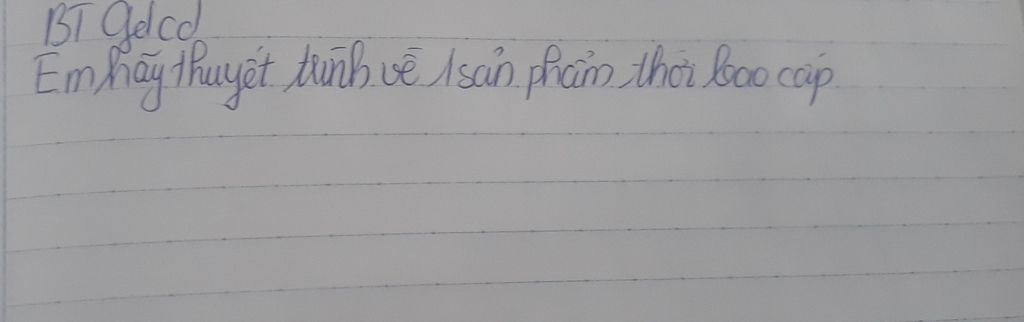 BT Gdcd
Em hãy thuyết trình về 1 sản phẩm thời bao cấp